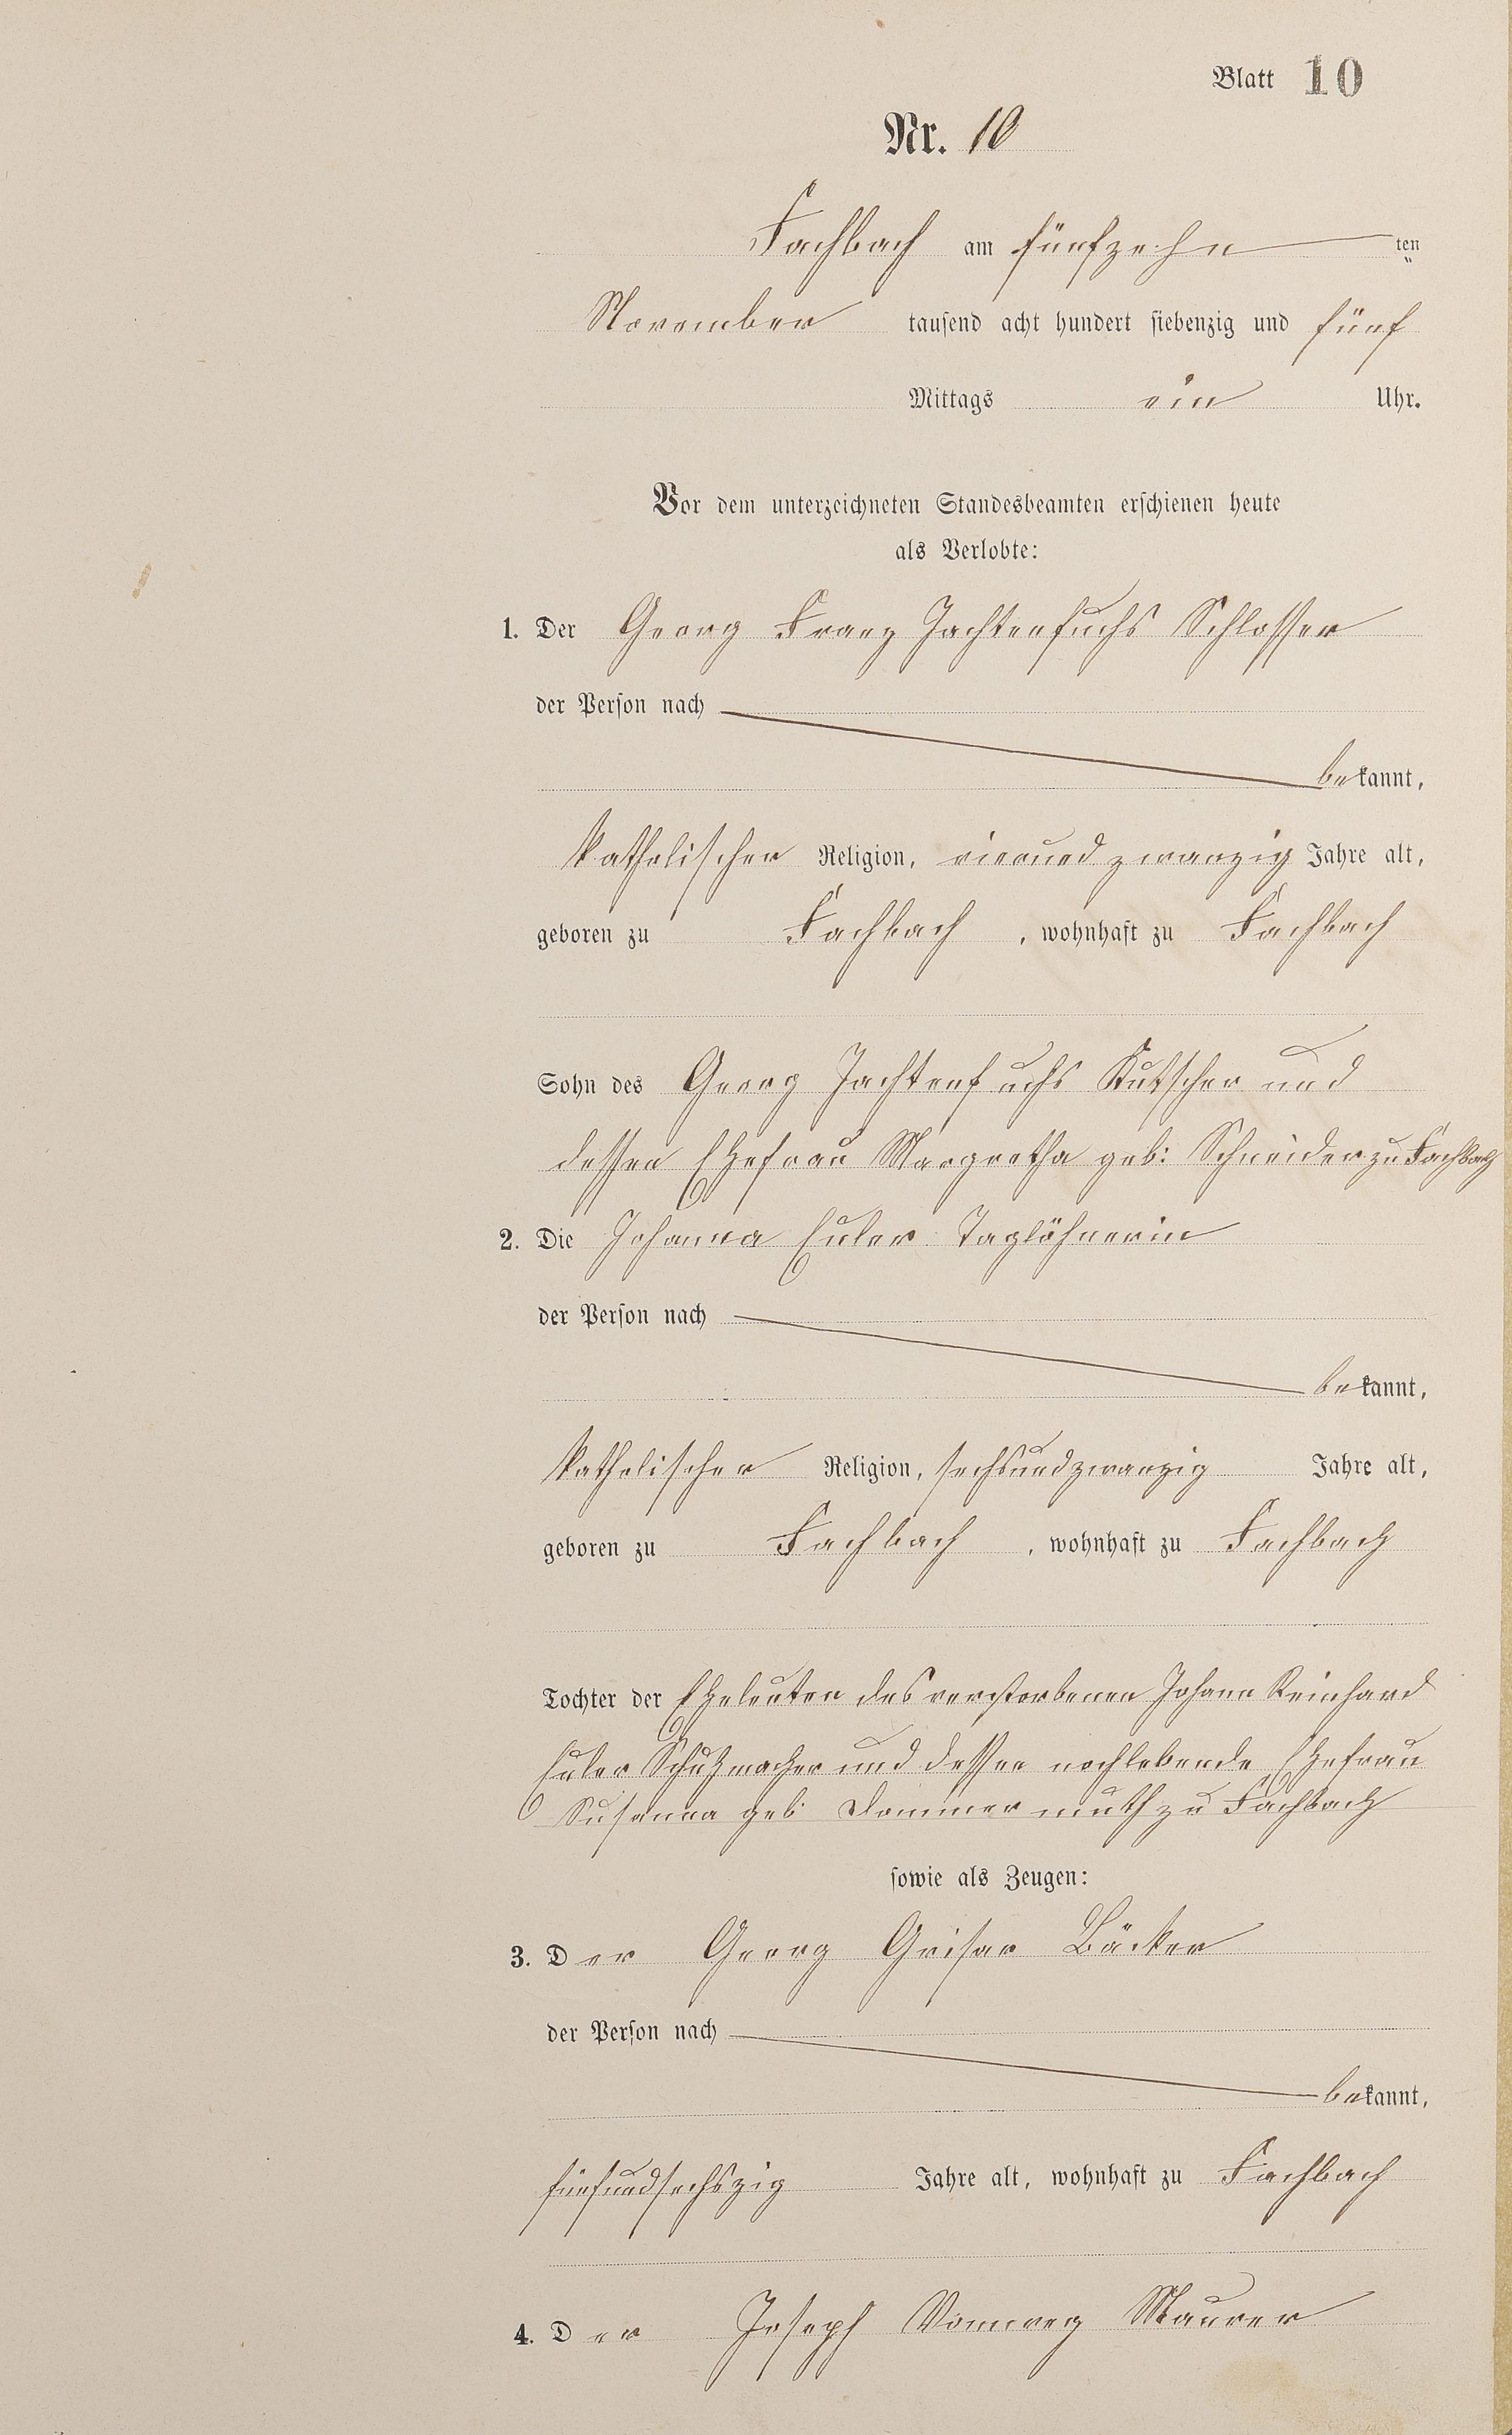 Blatt 10
Nr. 10
Fachbach am fünfzehn ten
November tausend acht hundert siebenzig und fünf
Mittags ein Uhr.
Vor dem unterzeichneten Standesbeamten erschienen heute
als Verlobte:
1. Der Georg Franz Jachtenfuchs Schlosser
der Person nach
bekannt,
katholischer Religion, vierundzwanzig Jahre alt,
geboren zu Fachbach, wohnhaft zu Fachbach
Sohn des Georg Jachtenfuchs Kutscher und
dessen Ehefrau Margretha geb: Schneider zu Fachbach
2. Die Johanna Euler Taglöhnerin
der Person nach
bekannt,
katholischer Religion, sechsundzwanzig Jahre alt,
geboren zu Fachbach, wohnhaft zu Fachbach
Tochter der Eheleuten des verstorbenen Johann Reinhard
Euler Schuhmacher und dessen noch lebende Ehefrau
Susanna geb. Dommermuth zu Fachbach
sowie als Zeugen:
3. Der Georg Grisar Bäcker
der Person nach
bekannt,
fünfundsechszig Jahre alt, wohnhaft zu Fachbach
4. Der Joseph Vomweg Maurer